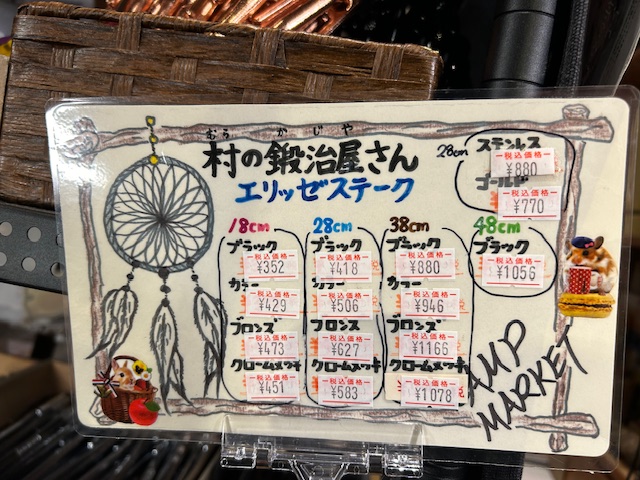 むら かじや
村の鍛冶屋さん
エリッゼステーク
28cm ステンレス
税込価格
¥880
税込価格
¥770
18cm
ブラック
税込価格
¥352
税込価格
¥429
ブロンズ
税込価格
¥473
クロームメッキ
税込価格
¥451
28cm
ブラック
税込価格
¥418
カラー
税込価格
¥506
ブロンズ
税込価格
¥627
クロームメッキ
税込価格
¥583
38cm
ブラック
税込価格
¥880
カラー
税込価格
¥946
ブロンズ
税込価格
¥1166
クロームメッキ
税込価格
¥1078
48cm
ブラック
税込価格
¥1056
AMP
MARKET